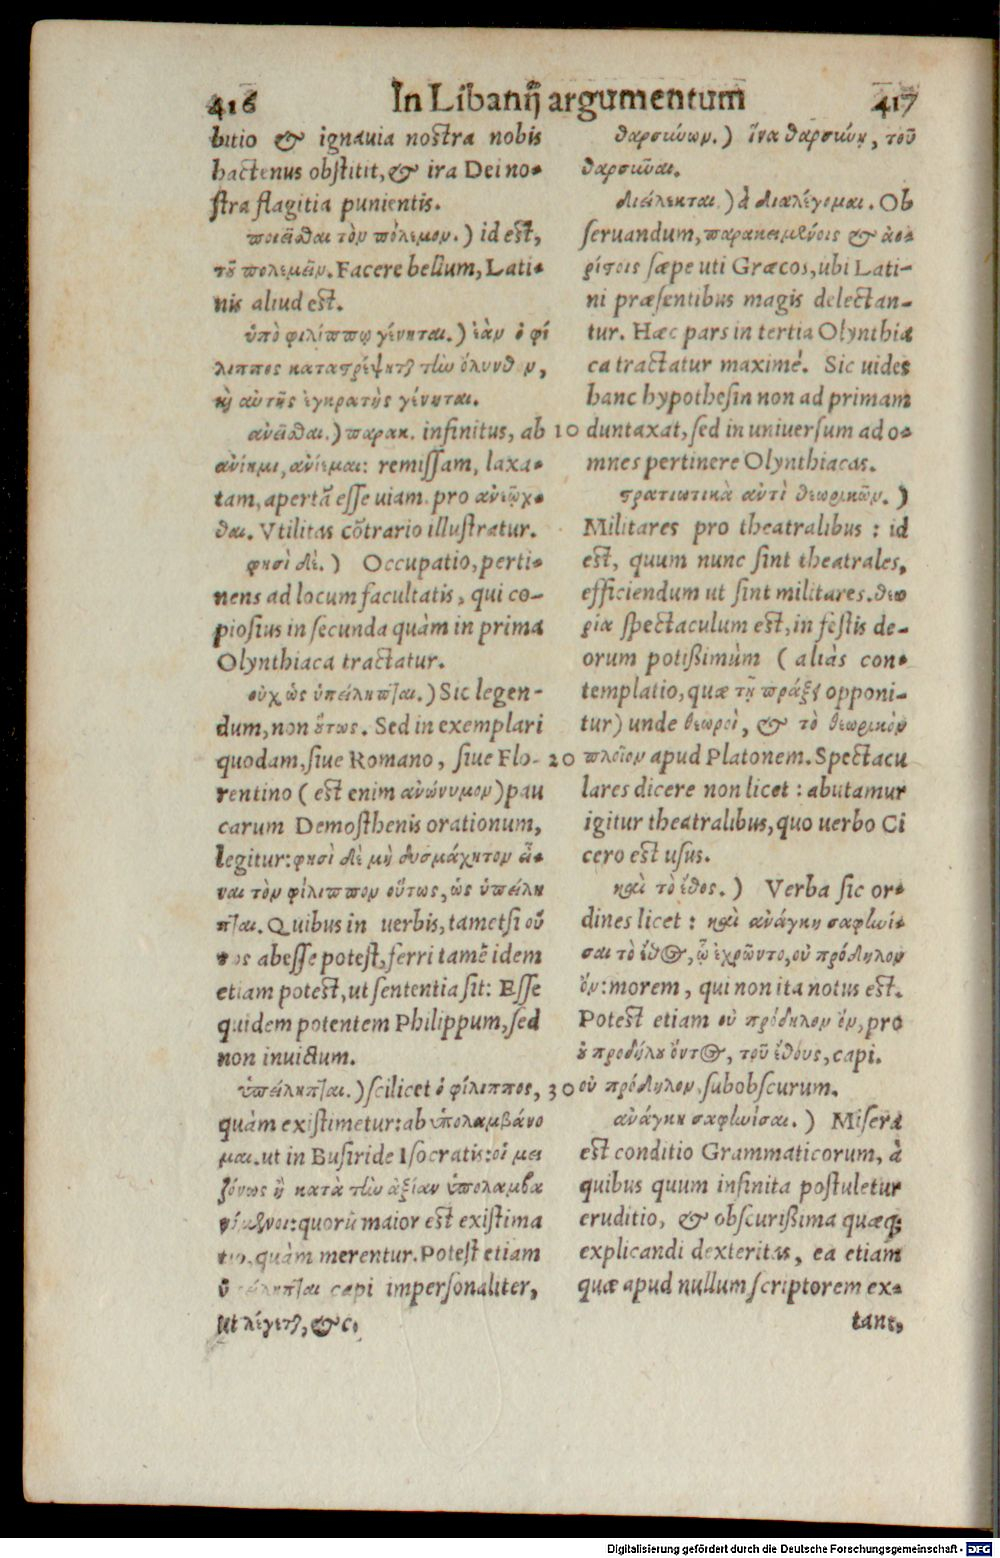 416 In Libanij argumentum 417
bitio & ignauia nostra nobis
hactenus obstitit, & ira Dei no-
stra flagitia punientis.
ποιεῖσθαι τὸν πόλεμον.) id est,
τοῦ πολεμεῖν. Facere bellum, Lati-
nis aliud est.
ὑπὸ φιλίππῳ γένηται.) ἐὰν ὁ φί
λιππος καταστρέψηται τὴν ὄλυνθον,
καὶ αὐτῆς ἐγκρατὴς γένηται.
ἀνεῖσθαι.) παρακ. infinitus, ab
ἀνίημι, ἀνίεμαι: remissam, laxa-
tam, apertã esse uiam. pro ἀνεῷχ-
θαι. Vtilitas cõtrario illustratur.
φησὶ δὲ.) Occupatio, perti-
nens ad locum facultatis, qui co-
piosius in secunda quàm in prima
Olynthiaca tractatur.
οὐχ ὡς ὑπείληπται.) Sic legen-
dum, non οὕτως. Sed in exemplari
quodam, siue Romano, siue Flo-
rentino (est enim ἀνώνυμον) pau
carum Demosthenis orationum,
legitur: φησὶ δὲ μὴ δυσμάχητον εἶ-
ναι τὸν φίλιππον οὕτως, ὡς ὑπείλη
πται. Quibus in uerbis, tametsi οὕ
τως abesse potest, ferri tamẽ idem
etiam potest, ut sententia sit: Esse
quidem potentem Philippum, sed
non inuictum.
ὑπείληπται.) scilicet ὁ φίλιππος,
quàm existimetur: ab ὑπολαμβάνο
μαι. ut in Busiride Isocratis: οἱ μει
ζόνως ἢ κατὰ τὴν ἀξίαν ὑπολαμβα
νόμενοι: quorũ maior est existima
tio, quàm merentur. Potest etiam
ὑπείληπται capi impersonaliter,
ut λέγεται, &c.
θαρσύνων.) ἵνα θαρσύνῃ, τοῦ
θαρσῦναι.
διείλεκται.) à διαλέγομαι. Ob
seruandum, παρακειμένοις & ἀο-
ρίστοις sæpe uti Græcos, ubi Lati-
ni præsentibus magis delectan-
tur. Hæc pars in tertia Olynthia
ca tractatur maximè. Sic uides
hanc hypothesin non ad primam
10 duntaxat, sed in uniuersum ad o-
mnes pertinere Olynthiacas.
στρατιωτικὰ ἀντὶ θεωρικῶν.)
Militares pro theatralibus: id
est, quum nunc sint theatrales,
efficiendum ut sint militares. θεω
ρία spectaculum est, in festis de-
orum potißimùm (aliàs con-
templatio, quæ τῇ πράξει opponi-
tur) unde θεωροὶ, & τὸ θεωρικὸν
20 πλοῖον apud Platonem. Spectacu
lares dicere non licet: abutamur
igitur theatralibus, quo uerbo Ci
cero est usus.
καὶ τὸ ἔθος.) Verba sic or-
dines licet: καὶ ἀνάγκη σαφηνί-
σαι τὸ ἔθος, ᾧ ἐχρῶντο, οὐ πρόδηλον
ὄν: morem, qui non ita notus est.
Potest etiam οὐ πρόδηλον ὄν, pro
οὐ προδήλου ὄντος, τοῦ ἔθους, capi.
30 οὐ πρόδηλον, subobscurum.
ἀνάγκη σαφηνίσαι.) Misera
est conditio Grammaticorum, à
quibus quum infinita postuletur
eruditio, & obscurißima quæq;
explicandi dexteritas, ea etiam
quæ apud nullum scriptorem ex-
tant,
Digitalisierung gefördert durch die Deutsche Forschungsgemeinschaft - DFG